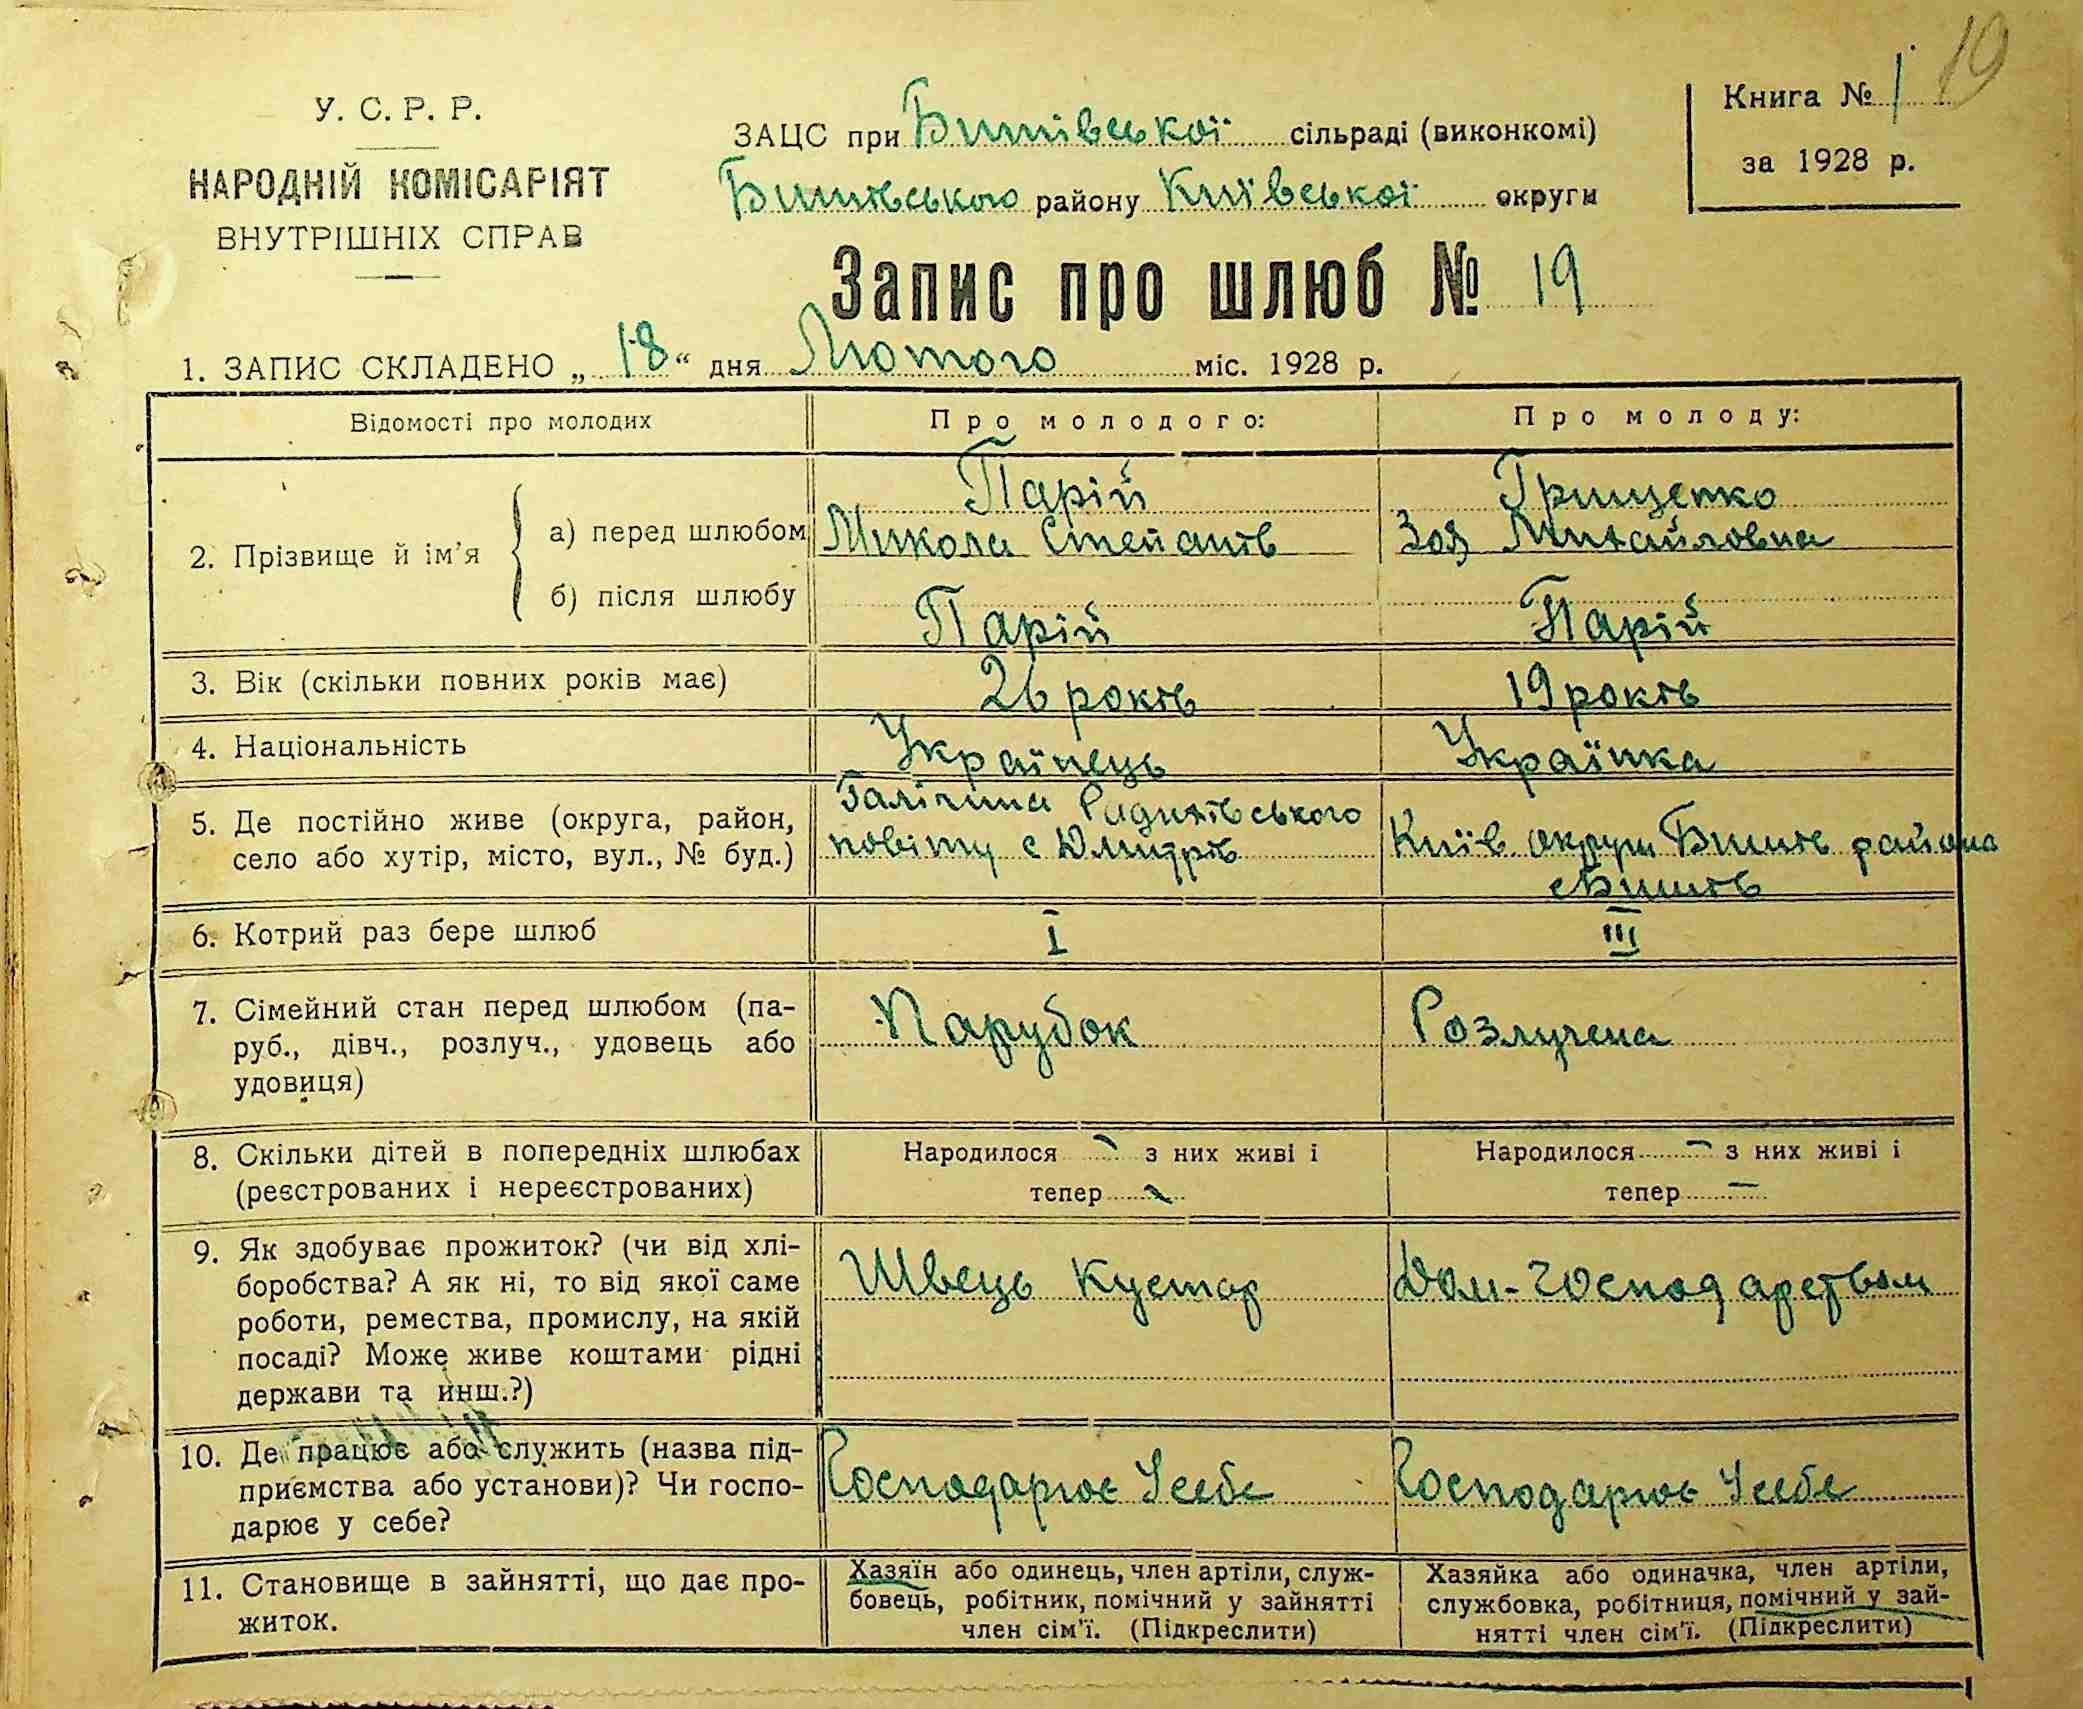 19
У. С. Р. Р.
НАРОДНІЙ КОМІСАРІЯТ
ВНУТРІШНІХ СПРАВ
ЗАЦС при Бишівської сільраді (виконкомі)
Бишівського району Київської округи
Книга № 1
за 1928 р.
Запис про шлюб № 19
1. ЗАПИС СКЛАДЕНО „ 18 “ дня Лютого міс. 1928 р.
Відомості про молодих
Про молодого:
Про молоду:
2. Прізвище й ім’я
а) перед шлюбом
б) після шлюбу
Парій
Микола Степанів
Парій
Грищенко
Зоя Михайловна
Парій
3. Вік (скільки повних років має)
26 років
19 років
4. Національність
Українець
Українка
5. Де постійно живе (округа, район,
село або хутір, місто, вул., № буд.)
Галічина
повіту с
Київ округи Бишів района
с Бишів
6. Котрий раз бере шлюб
I
III
7. Сімейний стан перед шлюбом (па-
руб., дівч., розлуч., удовець або
удовиця)
Парубок
Розлучена
8. Скільки дітей в попередніх шлюбах
(реєстрованих і нереєстрованих)
Народилося - з них живі і
тепер -
Народилося - з них живі і
тепер -
9. Як здобуває прожиток? (чи від хлі-
боробства? А як ні, то від якої саме
роботи, ремества, промислу, на якій
посаді? Може живе коштами рідні
держави та инш.?)
Швець Кустар
Дом-господарством
10. Де працює або служить (назва під-
приємства або установи)? Чи госпо-
дарює у себе?
Господарює У себе
Господарює У себе
11. Становище в зайнятті, що дає про-
житок.
Хазяїн або одинець, член артіли, служ-
бовець, робітник, помічний у зайнятті
член сім’ї. (Підкреслити)
Хазяйка або одиначка, член артіли,
службовка, робітниця, помічний у зай-
нятті член сім’ї. (Підкреслити)